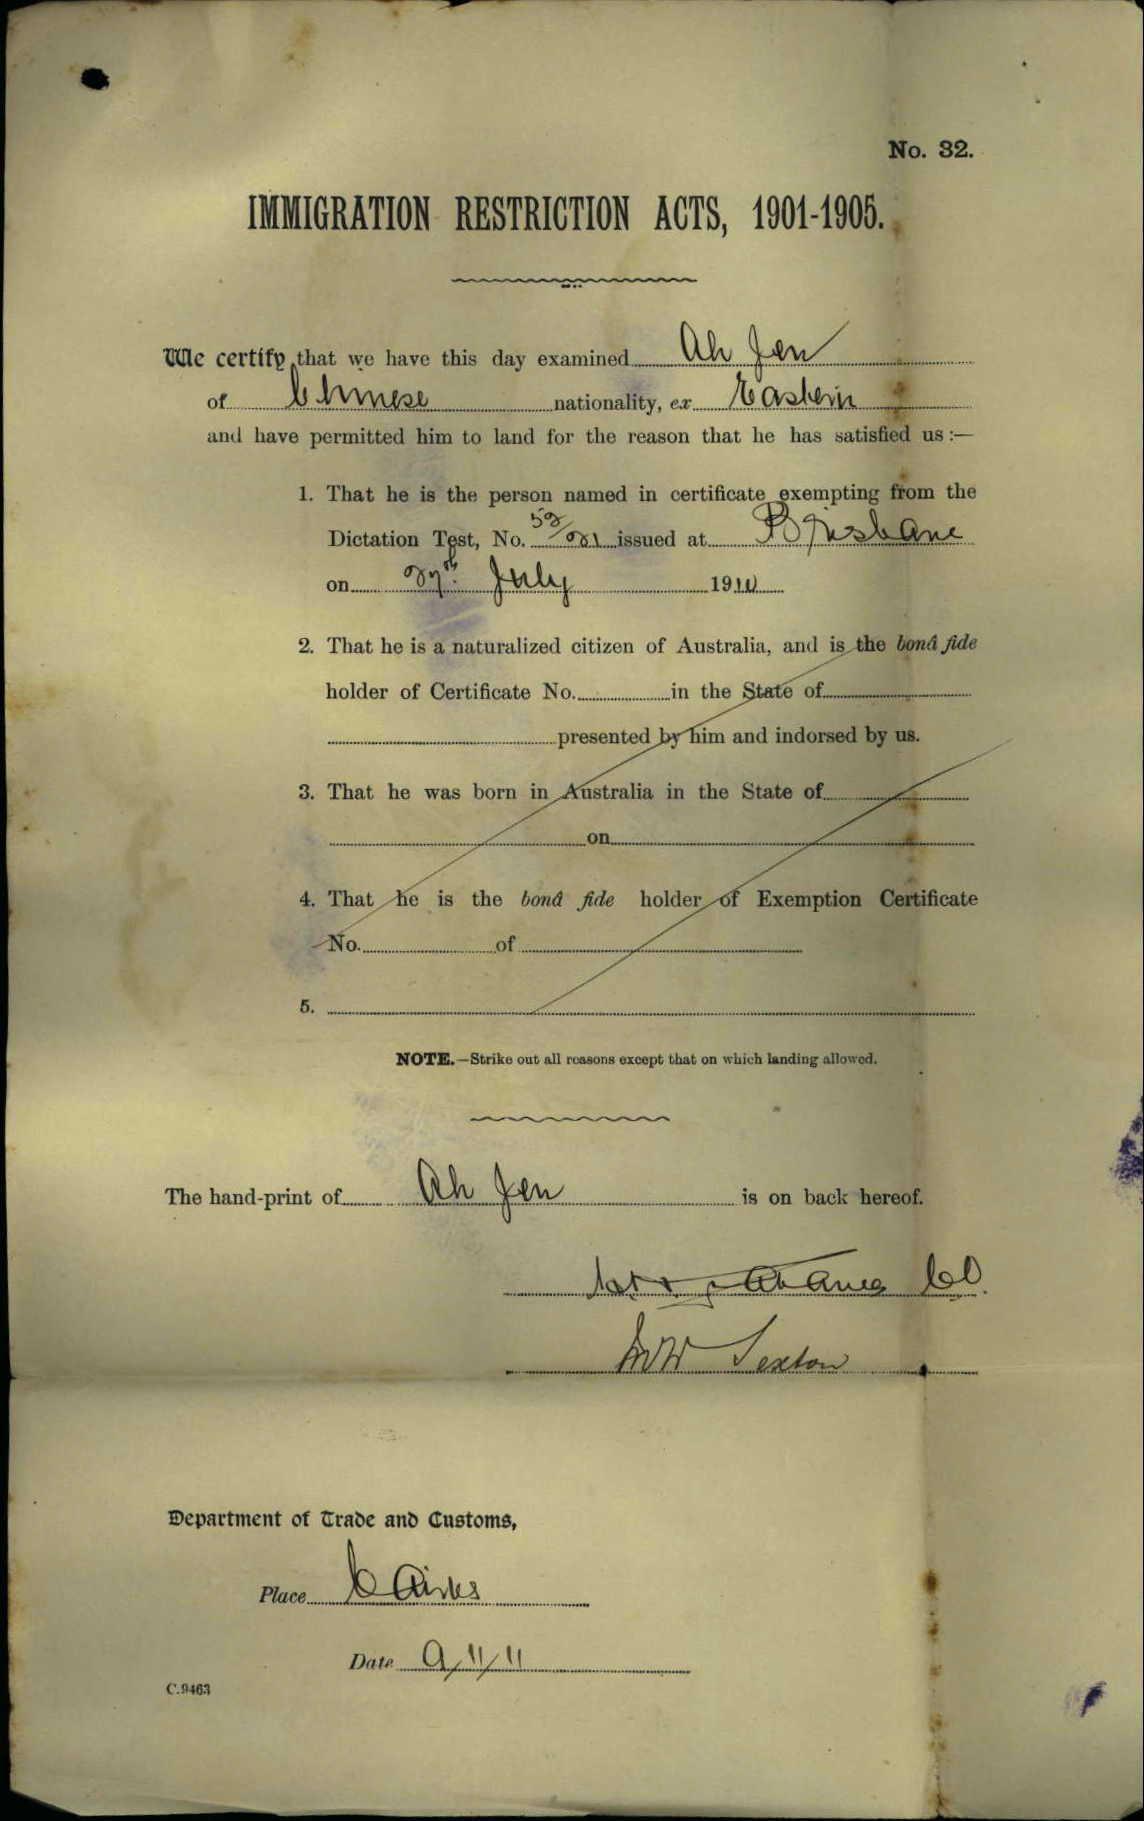 No. 32.
IMMIGRATION RESTRICTION ACTS, 1901-1905.
We certify that we have this day examined Ah Jen
of Chinese nationality, ex Eastern
and have permitted him to land for the reason that he has satisfied us :—
1. That he is the person named in certificate exempting from the
Dictation Test, No. issued at Brisbane
on 27th July 1910
2. That he is a naturalized citizen of Australia, and is the bonâ fide
holder of Certificate No. in the State of
presented by him and indorsed by us.
3. That he was born in Australia in the State of
on
4. That he is the bonâ fide holder of Exemption Certificate
No. of
5.
NOTE.—Strike out all reasons except that on which landing allowed.
The hand-print of Ah Jen is on back hereof.
Sexton
Department of Trade and Customs,
Place Cairns
Date 9/11/11
C.9463